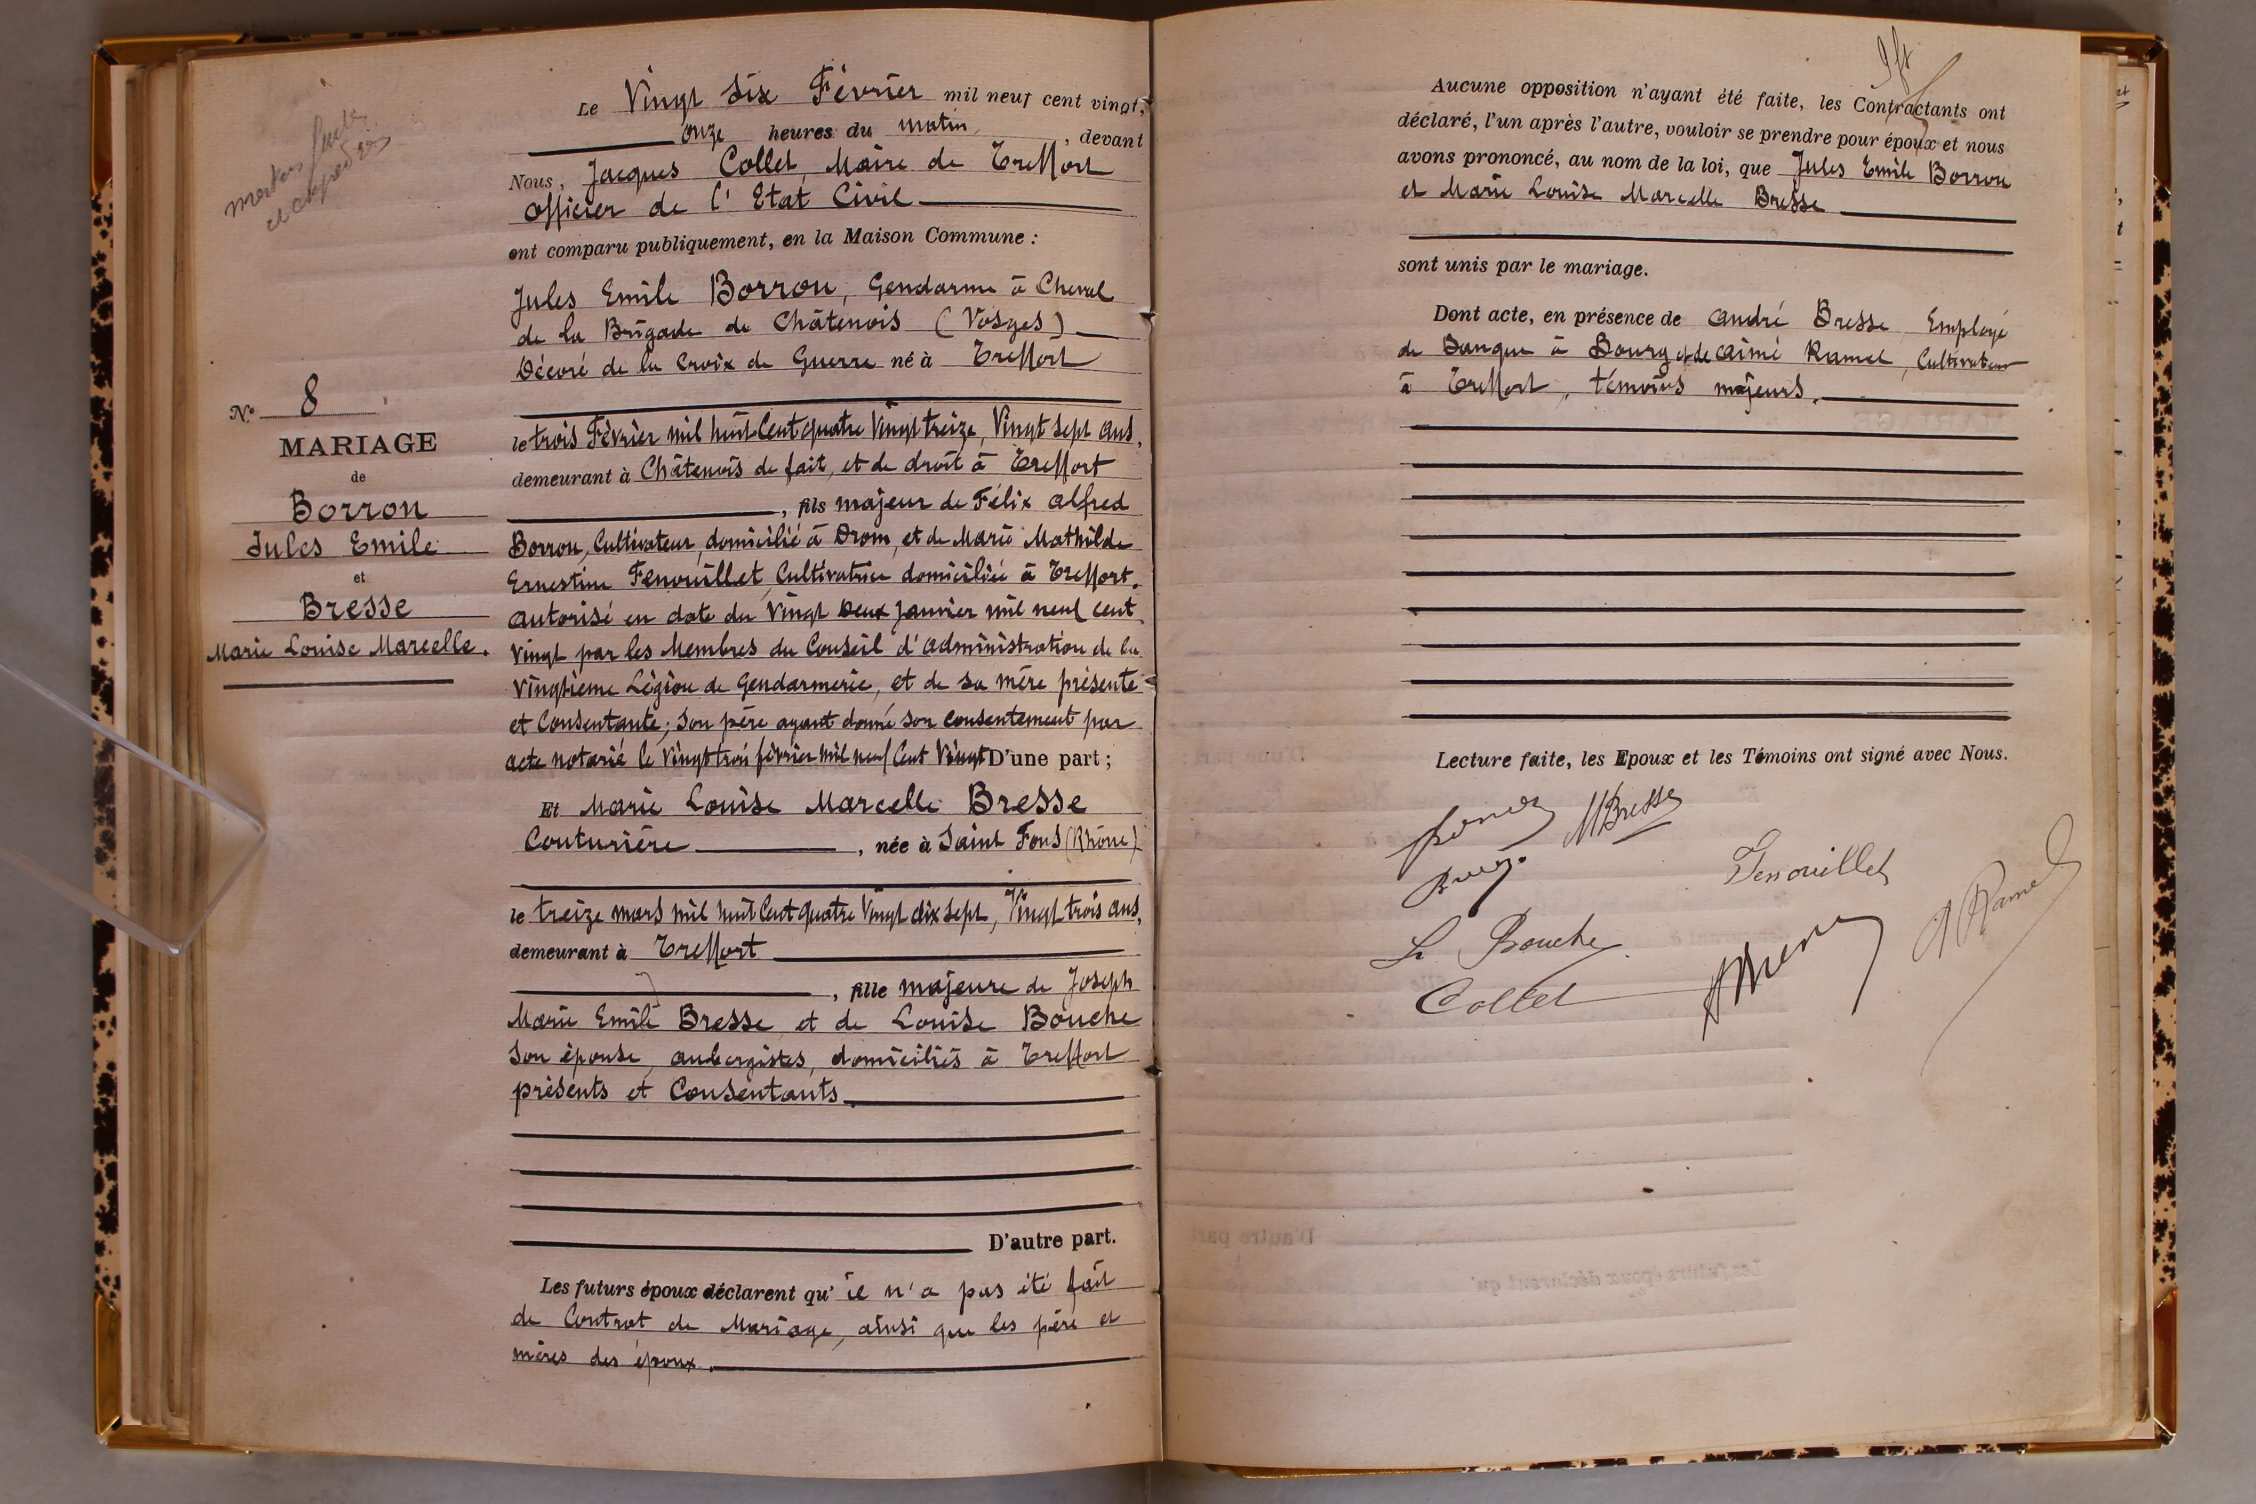 Le Vingt Six Février mil neuf cent vingt,
onze heures du matin, devant
Nous, Jacques Collet, Maire de Treffort
Officier de l'Etat Civil
ont comparu publiquement, en la Maison Commune :
Jules Emile Borron, Gendarme à Cheval
de la Brigade de Châtenois (Vosges)
Décoré de la Croix de Guerre né à Treffort
le trois Février mil huit Cent quatre Vingt treize, Vingt sept ans,
demeurant à Châtenois de fait, et de droit à Treffort
, fils majeur de Félix Alfred
Borron, Cultivateur, domicilié à Drom, et de Marie Mathilde
Ernestine Fenouillet, Cultivatrice domiciliée à Treffort.
Autorisé en date du Vingt Deux Janvier mil neuf cent
Vingt par les Membres du Conseil d'Administration de la
Vingtième Légion de Gendarmerie, et de sa mère présente
et Consentante ; son père ayant donné son consentement par
acte notarié le vingt trois février mil neuf Cent Vingt D'une part ;
Et Marie Louise Marcelle Bresse
Couturière, née à Saint Fons (Rhône)
le treize mars mil huit Cent quatre Vingt dix sept, Vingt trois ans,
demeurant à Treffort
, fille majeure de Joseph
Marie Emile Bresse et de Louise Bouche
son épouse, aubergistes, domiciliés à Treffort
présents et Consentants
D'autre part.
Les futurs époux déclarent qu'il n'a pas été fait
de Contrat de Mariage, ainsi que les père et
mères des époux.
N° 8
MARIAGE
de
Borron
Jules Emile
et
Bresse
Marie Louise Marcelle.
Aucune opposition n'ayant été faite, les Contractants ont
déclaré, l'un après l'autre, vouloir se prendre pour époux et nous
avons prononcé, au nom de la loi, que Jules Emile Borron
et Marie Louise Marcelle Bresse
sont unis par le mariage.
Dont acte, en présence de André Bresse Employé
de Banque à Bourg et de Aimé Ramel, Cultivateur
à Treffort, témoins majeurs.
Lecture faite, les Epoux et les Témoins ont signé avec Nous.
M Bresse
Fenouillet
A Ramel
L. Bouche
Collet